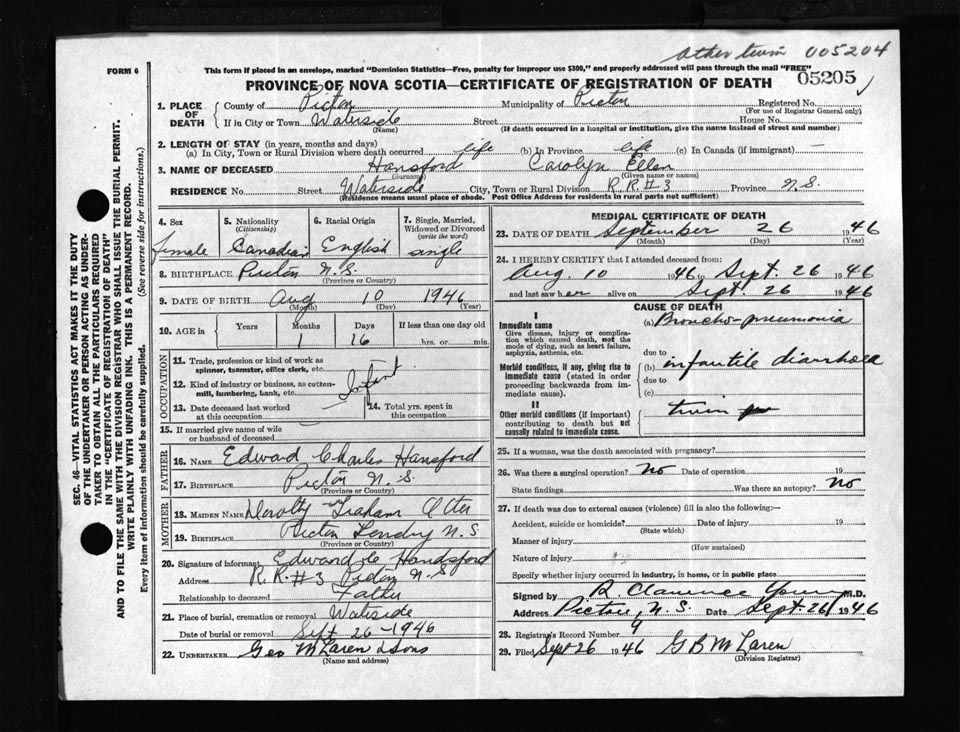 other twin 005204
FORM 6
This form if placed in an envelope, marked "Dominion Statistics—Free, penalty for improper use $300," and properly addressed will pass through the mail "FREE"
05205
PROVINCE OF NOVA SCOTIA—CERTIFICATE OF REGISTRATION OF DEATH
1. PLACE OF DEATH
County of Pictou Municipality of Pictou Registered No.
(For use of Registrar General only)
If in City or Town Waterside Street House No.
(Name) (If death occurred in a hospital or institution, give the name instead of street and number)
2. LENGTH OF STAY (in years, months and days)
(a) In City, Town or Rural Division where death occurred life (b) In Province life (c) In Canada (if immigrant) —
3. NAME OF DECEASED Hansford Carolyn Ellen
(Surname) (Given name or names)
RESIDENCE No. Street Waterside City, Town or Rural Division R.R.#3 Province N.S.
(Residence means usual place of abode. Post Office Address for residents in rural parts not sufficient)
SEC. 46—VITAL STATISTICS ACT MAKES IT THE DUTY
OF THE UNDERTAKER OR PERSON ACTING AS UNDER-
TAKER TO OBTAIN ALL THE PARTICULARS REQUIRED
IN THE "CERTIFICATE OF REGISTRATION OF DEATH"
AND TO FILE THE SAME WITH THE DIVISION REGISTRAR WHO SHALL ISSUE THE BURIAL PERMIT.
WRITE PLAINLY WITH UNFADING INK. THIS IS A PERMANENT RECORD.
Every item of information should be carefully supplied. (See reverse side for instructions.)
4. Sex 5. Nationality 6. Racial Origin 7. Single, Married,
(Citizenship) Widowed or Divorced
(write the word)
female Canadian English single
8. BIRTHPLACE Pictou N.S.
(Province or Country)
9. DATE OF BIRTH Aug 10 1946
(Month) (Day) (Year)
10. AGE in Years Months Days If less than one day old
1 16 hrs. or min.
OCCUPATION
11. Trade, profession or kind of work as
spinner, teamster, office clerk, etc.
12. Kind of industry or business, as cotten-
mill, lumbering, bank, etc.
Infant
13. Date deceased last worked
at this occupation
14. Total yrs. spent in
this occupation
15. If married give name of wife
or husband of deceased
FATHER
16. NAME Edward Charles Hansford
17. BIRTHPLACE Pictou N.S.
(Province or Country)
MOTHER
18. MAIDEN NAME Dorothy Graham
19. BIRTHPLACE Pictou Landry N.S
(Province or Country)
20. Signature of informant Edward C Handsford
Address R.R.#3 Pictou N.S
Relationship to deceased Father
21. Place of burial, cremation or removal Waterside
Date of burial or removal Sept 26-1946
22. UNDERTAKER Geo McLaren & Sons
(Name and address)
MEDICAL CERTIFICATE OF DEATH
23. DATE OF DEATH September 26 1946
(Month) (Day) (Year)
24. I HEREBY CERTIFY that I attended deceased from:
Aug. 10 1946 to Sept. 26 1946
and last saw her alive on Sept. 26 1946
CAUSE OF DEATH
I
Immediate cause
Give disease, injury or complica-
tion which caused death, not the
mode of dying, such as heart failure,
asphyxia, asthenia, etc.
(a) Broncho-pneumonia
due to
Morbid conditions, if any, giving rise to
immediate cause (stated in order
proceeding backwards from im-
mediate cause).
(b) infantile diarrhoea
due to
(c)
II
Other morbid conditions (if important)
contributing to death but not
causally related to immediate cause.
twin
25. If a woman, was the death associated with pregnancy?
26. Was there a surgical operation? No Date of operation 19
State findings Was there an autopsy? No
27. If death was due to external causes (violence) fill in also the following:—
Accident, suicide or homicide? Date of injury 19
(State which)
Manner of injury
(How sustained)
Nature of injury
Specify whether injury occurred in industry, in home, or in public place
Signed by R. Clarence Young M.D.
Address Pictou, N.S. Date Sept. 26/ 1946
28. Registrar's Record Number 9
29. Filed Sept 26 1946 G B McLaren
(Division Registrar)